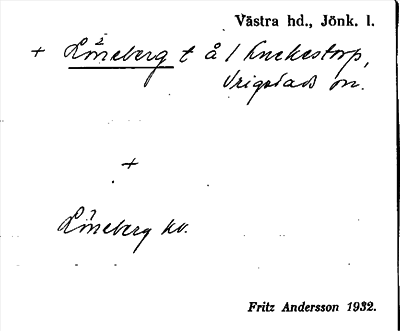 Västra hd., Jönk. l.
+ Löneberg t å 1 Knekestorp,
Vrigstads sn.
+
Löneberg kv.
Fritz Andersson 1932.